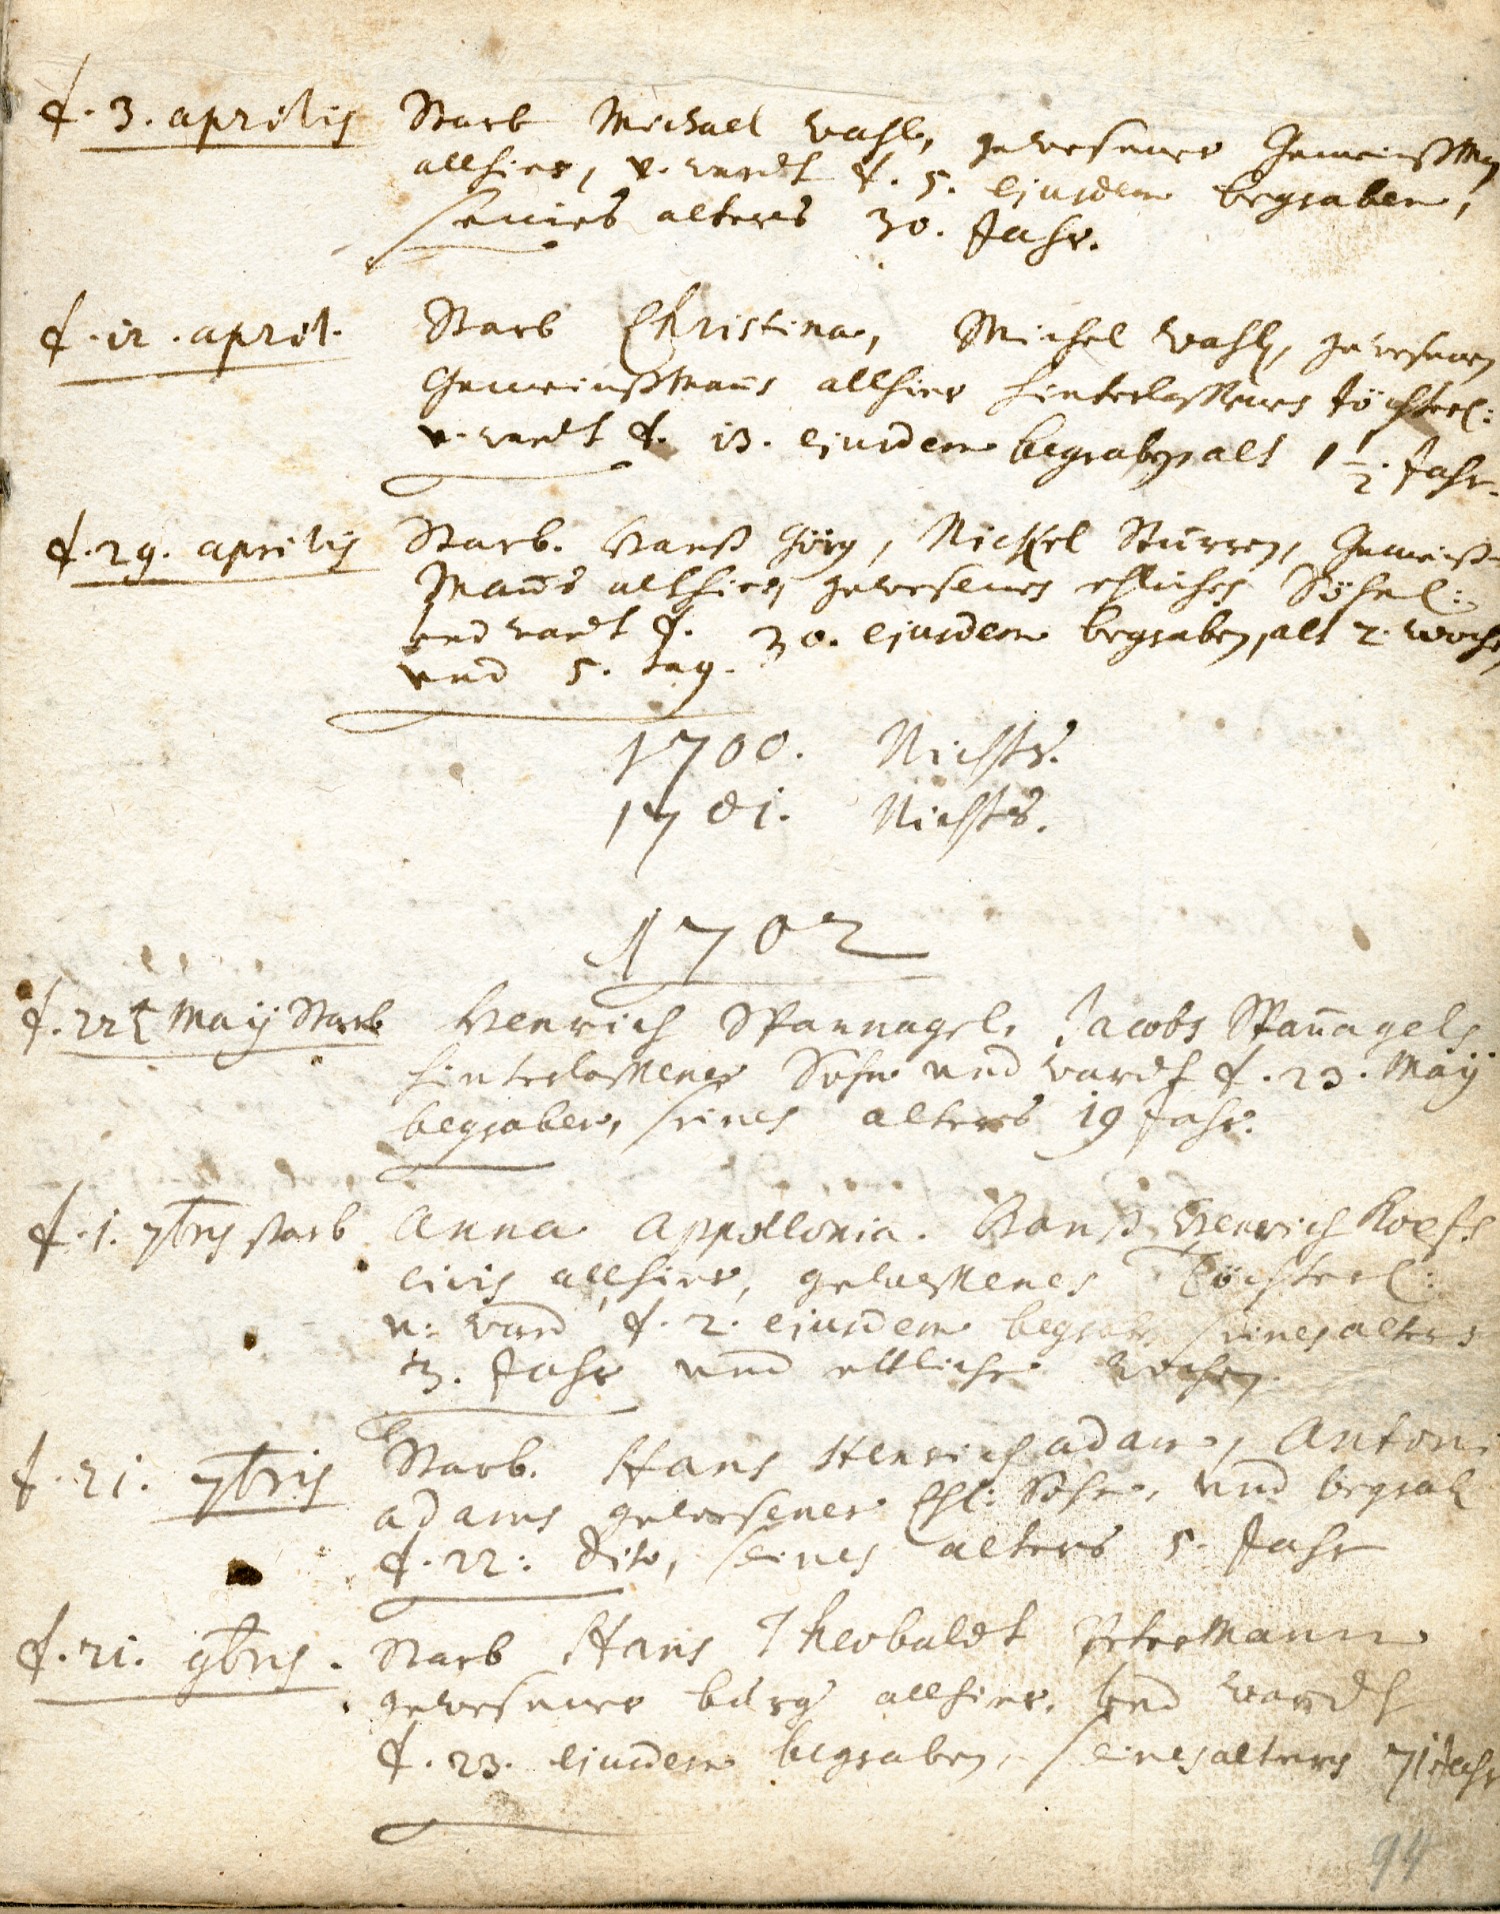 d. 3. aprilis Starb Michael Wahl, gewesener Gemeinßman
allhier, v. wardt d. 5. ejusdem begraben,
seines alters 30. Jahr.
d. 12. april. Starb Christina, Michel Wahl, gewesenen
Gemeinßmans allhier hinterlassenes töchterl:
v. wardt d. 13. ejusdem begraben alt 1 1/2. Jahr.
d. 29. aprilis Starb. Hanß Görg, Nickel Sturren, Gemeinß-
Mans allhier, gewesenes ehliches Söhnl:
und wardt d. 30. ejusdem begraben, alt 2. Wochen
und 5. tag.
1700. Nichts.
1701. Nichts.
1702
d. 22t Maÿ Starb Henrich Spannagel, Jacobs Spanagels
hinterlassener Sohn und wardt d. 23. Maÿ
begraben, seines alters 19 Jahr.
d. 1. 7bris starb Anna Appollonia. Hanß Henrich
civis allhier, gewessenes Töchterl:
u: ward d. 2. ejusdem begrab. seines alters
3. Jahr und ettliche Wochen.
d. 21. 7bris Starb. Hans Henrich adam, Antoni
adams gewesener Ehl: Sohn, und begrab
d. 22: dito, seines alters 5. Jahr
d. 21. 9bris. Starb Hans Theobaldt Petermann
gewesener burg allhier. und wardt
d. 23. ejusdem begraben, seines alters 71 Jahr
94